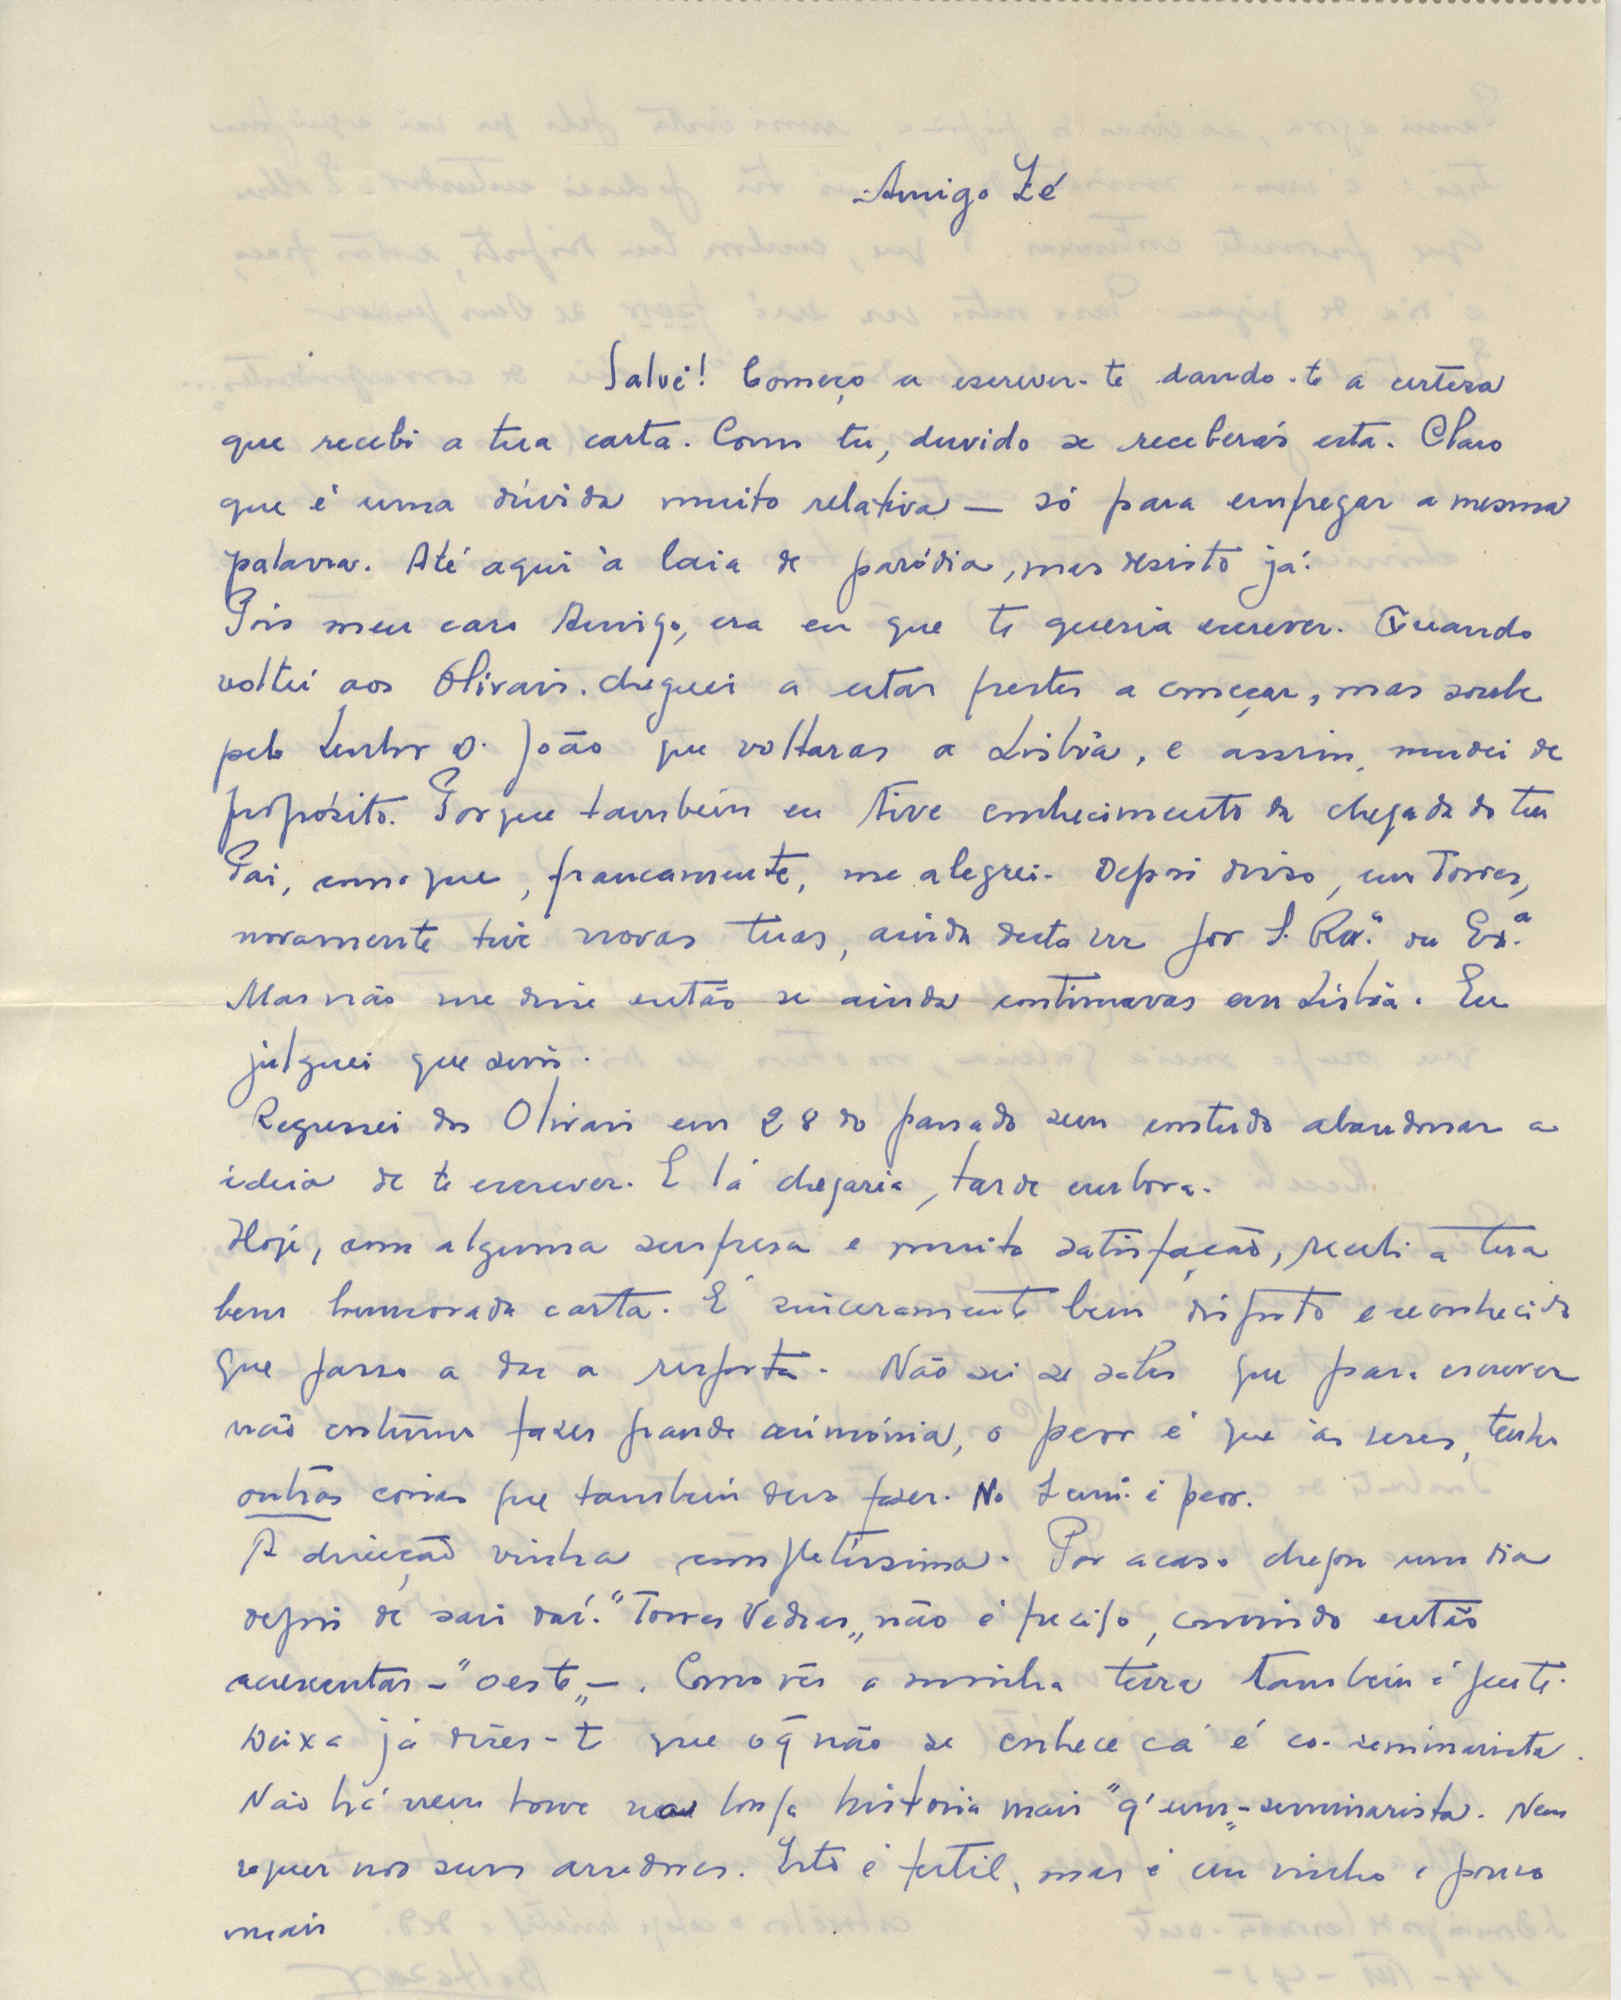 Amigo Zé
Salvé! Começo a escrever-te dando-te a certeza
que recebi a tua carta. Como tu, duvido se receberás esta. Claro
que é uma dúvida muito relativa — só para empregar a mesma
palavra. Até aqui à laia de paródia, mas desisto já.
Pois meu caro Amigo, era eu que te queria escrever. Quando
voltei aos Olivais cheguei a estar prestes a começar, mas soube
pelo Senhor D. João que voltaras a Lisbôa, e assim, mudei de
propósito. Porque também eu tive conhecimento da chegada do teu
Pai, com que, francamente, me alegrei. Depois disso, em Torres,
novamente tive novas tuas, ainda desta vez por S. Rev.ª ou Ex.ª
Mas não me disse então se ainda continuavas em Lisbôa. Eu
julguei que sim.
Regressei dos Olivais em 28 do passado sem contudo abandonar a
ideia de te escrever. E lá chegaria, tarde embora.
Hoje, com alguma surpresa e muita satisfação, recebi a tua
bem humorada carta. É sinceramente bem disposto e reconhecido
que passo a dar a resposta. Não sei se sabes que para escrever
não costumo fazer grande cerimónia, o peor é que às vezes, tenho
outras coisas que também devo fazer. No Sem. é peor.
A direcção vinha completíssima. Por acaso chegou um dia
depois de sair daí. "Torres Vedras" não é preciso, comido então
acrescentar - "oeste" - . Como vês a minha terra também é gente.
Deixa já dizer-te que o q̃ não se conhece cá é co-seminarista.
Não há nem houve na longa história mais "q'um" seminarista. Nem
sequer nos seus arredores. Isto é fertil, mas é em vinho e pouco
mais